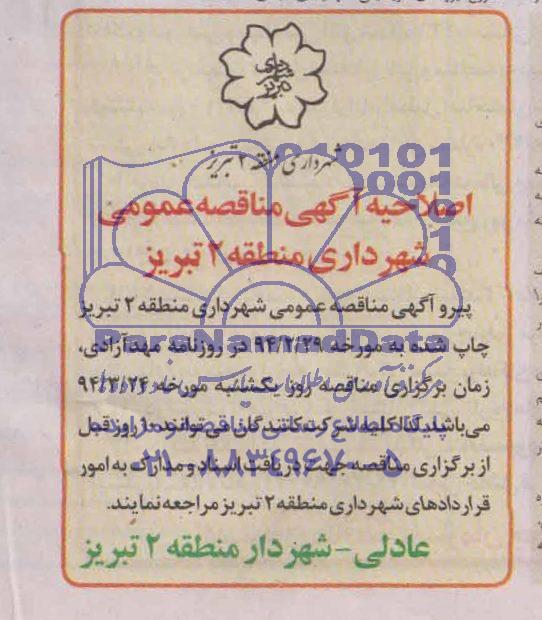 شهرداری تبریز
شهرداری منطقه ۲ تبریز
اصلاحیه آگهی مناقصه عمومی
شهرداری منطقه ۲ تبریز
پیرو آگهی مناقصه عمومی شهرداری منطقه ۲ تبریز
چاپ شده به مورخه ۹۴/۲/۲۹ در روزنامه مهدآزادی،
زمان برگزاری مناقصه روز یکشنبه مورخه ۹۴/۳/۲۴
می‌باشد لذا کلیه شرکت‌کنندگان می‌توانند ۱۰ روز قبل
از برگزاری مناقصه جهت دریافت اسناد و مدارک به امور
قراردادهای شهرداری منطقه ۲ تبریز مراجعه نمایند.
عادلی - شهردار منطقه ۲ تبریز
ParsNamadData
پایگاه اطلاع رسانی مناقصه و مزایده
۰۲۱-۸۸۳۴۹۶۷۰-۵